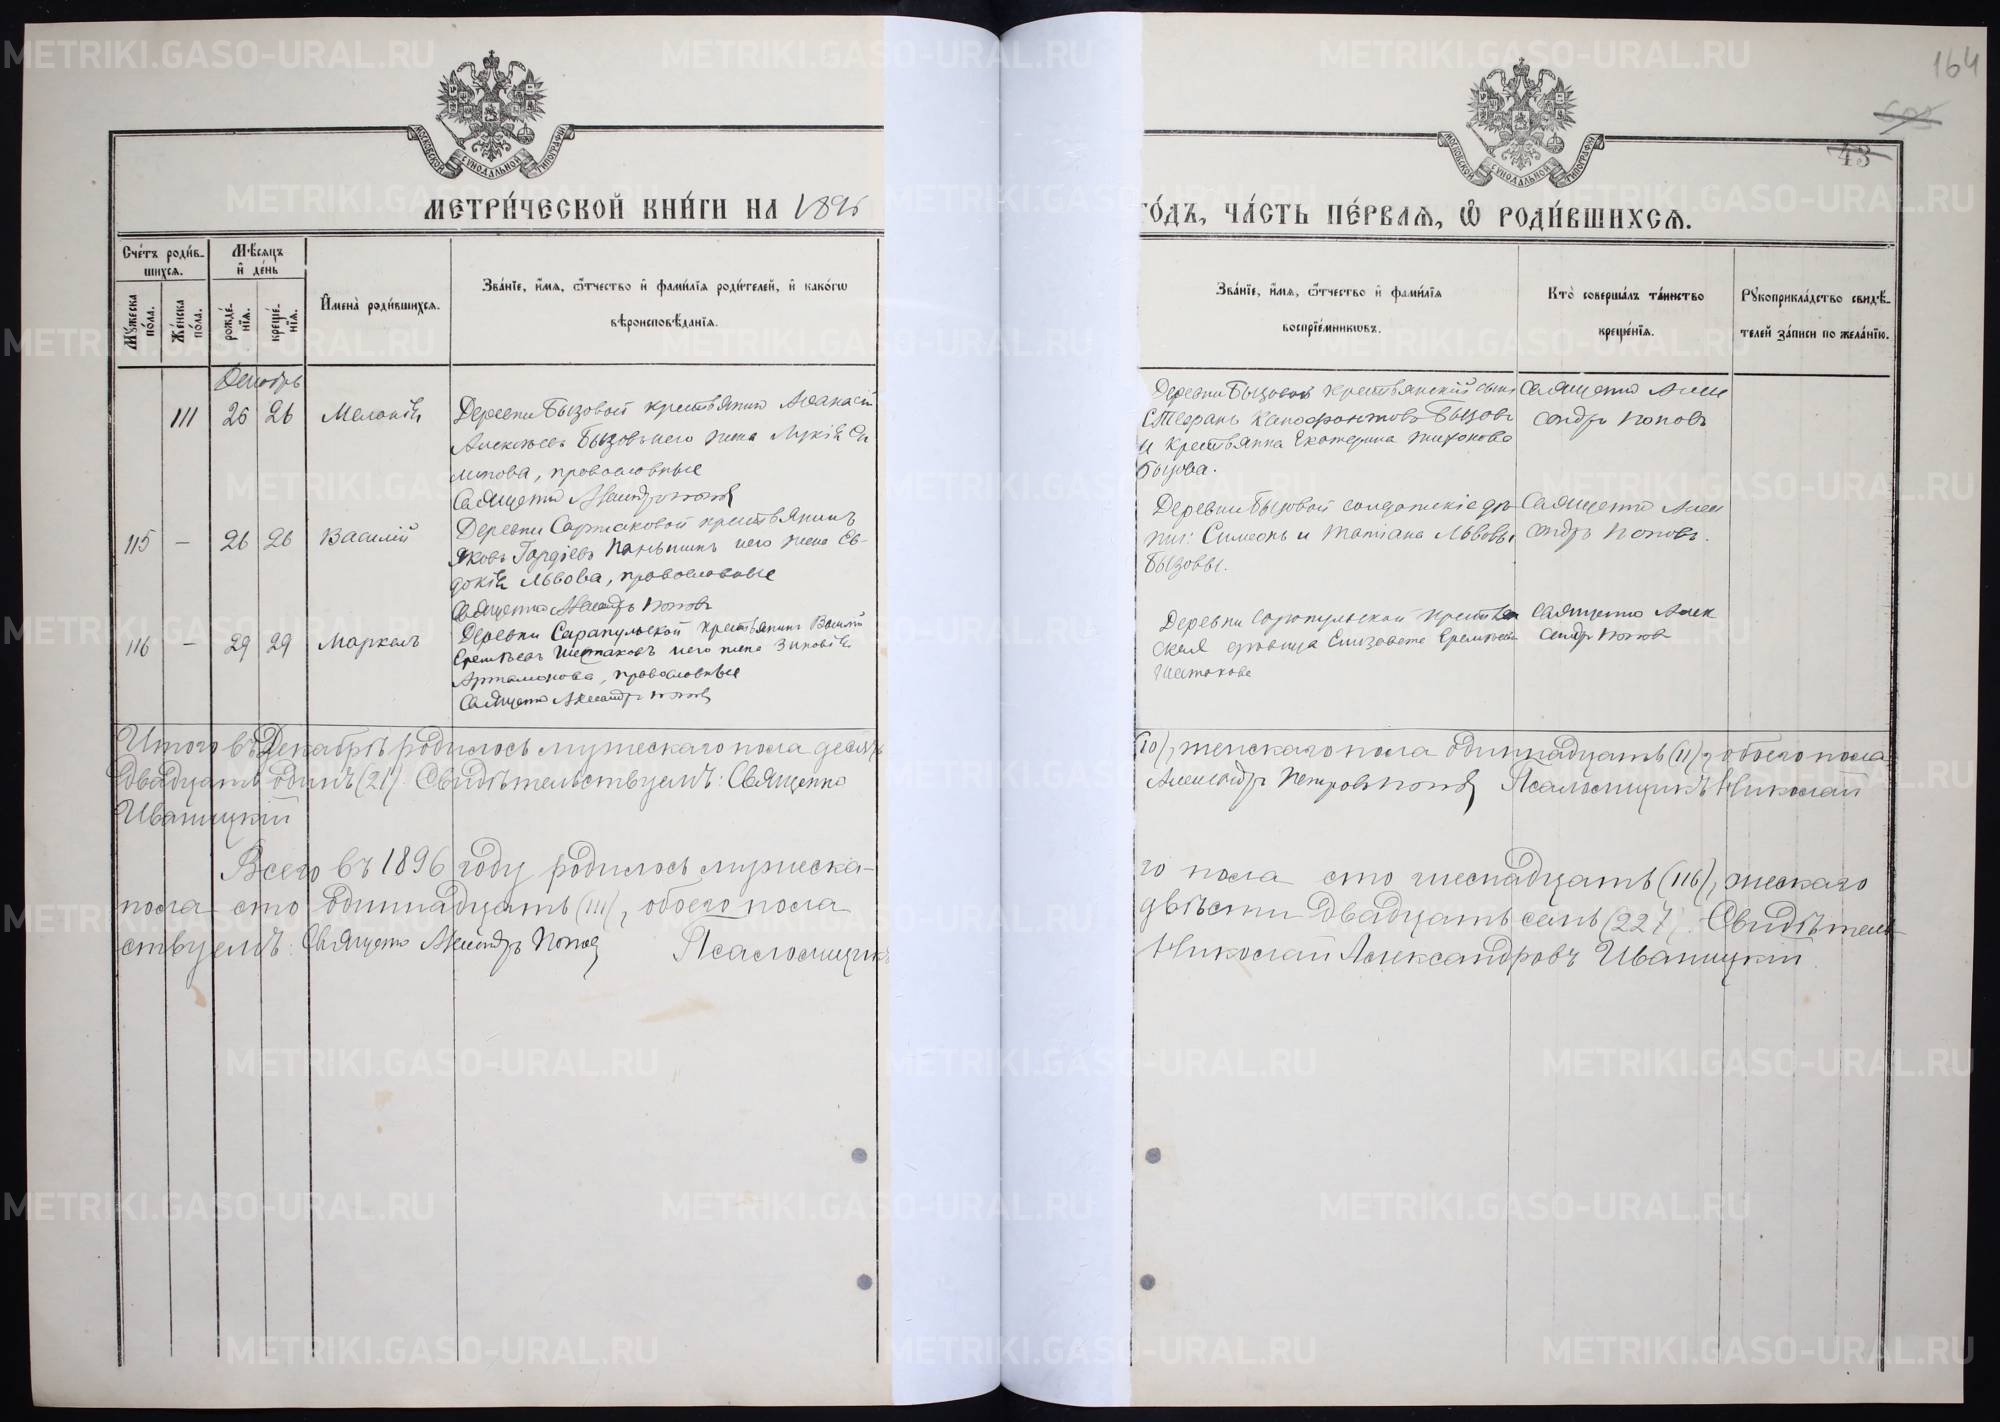 164
43
МОСКОВСКОЙ СѴНОДАЛЬНОЙ ТИПОГРАФІИ
МОСКОВСКОЙ СѴНОДАЛЬНОЙ ТИПОГРАФІИ
МЕТРИ́ЧЕСКОЙ КНИ́ГИ НА 1896
ГО́ДЪ, ЧА́СТЬ ПЕ́РВАѦ, Ѡ РОДИ́ВШИХСѦ.
Сче́тъ роди́вшихсѧ.
Мꙋжеска пола.
Же́нска по́ла.
Мѣ́сѧцъ и де́нь
рожде́нїѧ.
креще́нїѧ.
Имена̀ роди́вшихсѧ.
Зва́нїе, и́мѧ, ѻ҆́тчество и фами́лїѧ роди́телей, и како́гѡ
вѣроисповѣ́данїѧ.
Зва́нїе, и́мѧ, ѻ҆́тчество и фами́лїѧ
воспрїе́мникѡвъ.
Кто̀ соверша́лъ та́инство
креще́нїѧ.
Рꙋкоприкла́дство свидѣ́-
телей за́писи по жела́нїю.
Декабрь
111 26 26 Меланія
Деревни Бызовой крестьянинъ Аѳанасій
Алексѣевъ Бызовъ и его жена Лукія
православные
Священникъ Александръ Поповъ
Деревни Бызовой крестьянскій сынъ
Стефанъ Бызовъ
и крестьянка Екатерина Тихонова
Бызова.
Священникъ Александръ Поповъ
115 — 26 26 Василій
Деревни крестьянинъ
Яковъ Гордіевъ Паньшинъ и его жена Ев-
докія Львова, православные
Священникъ Александръ Поповъ
Деревни Бызовой солдатскіе дѣ-
ти: Симеонъ и Татіана Львовы
Бызовы.
Священникъ Александръ Поповъ.
116 — 29 29 Маркелъ
Деревни Сарапульской крестьянинъ Василій
Еремѣевъ Шестаковъ и его жена Зиновія
Артамонова, православные
Священникъ Александръ Поповъ
Деревни Сарапульской крестьян
ская дѣвица Елизавета Еремѣева
Шестакова
Священникъ Александръ Поповъ
Итого въ Декабрѣ родилось мужескаго пола десять
(10), женскаго пола одиннадцать (11), обоего пола
двадцать одинъ (21). Свидѣтельствуемъ: Священникъ
Александръ Петровъ Поповъ Псаломщикъ Николай
Иваницкій
Всего въ 1896 году родилось мужеска-
го пола сто шестнадцать (116), женскаго
пола сто одиннадцать (111), обоего пола
двѣсти двадцать семь (227). Свидѣтель
ствуемъ: Священникъ Александръ Поповъ Псаломщикъ
Николай Александровъ Иваницкій.
METRIKI.GASO-URAL.RU